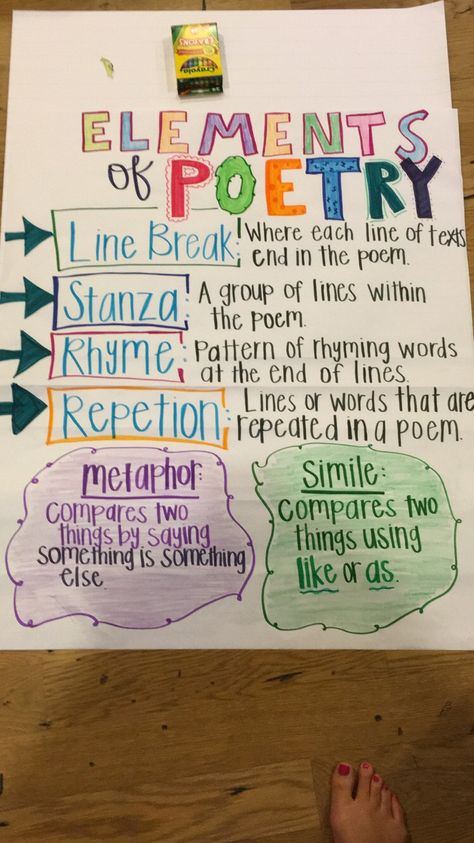 CRAYONS
Crayola
ELEMENTS
of POETRY
Line Break: Where each line of texts
end in the poem.
Stanza: A group of lines within
the poem.
Rhyme: Pattern of rhyming words
at the end of lines.
Repetion: Lines or words that are
repeated in a poem.
metaphor:
compares two
things by saying
something is something
else
Simile:
compares two
things using
like or as.